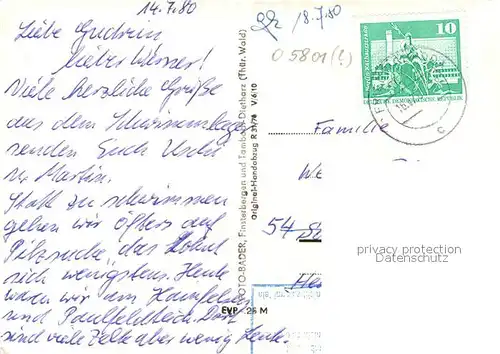 14.7.80
Liebe Gudrun,
lieber Werner!
Viele herzliche Grüße
aus dem Schwimmlager
senden Euch Uschi
u. Martin.
Statt zu schwimmen
gehen wir öfters auf
Pilzsuche, das lohnt
sich wenigstens. Heute
waren wir am
und Paulfeldteich. Dort
sind viele Zelte aber wenig Leute.
FOTO-BADER, Finsterbergen und Tambach-Dietharz (Thür. Wald)
Original-Handabzug R 31/78 V 610
EVP -,25 M
18.7.80
O 5801 (!)
10
DEUTSCHE DEMOKRATISCHE REPUBLIK
Familie
We
54
privacy protection
Datenschutz